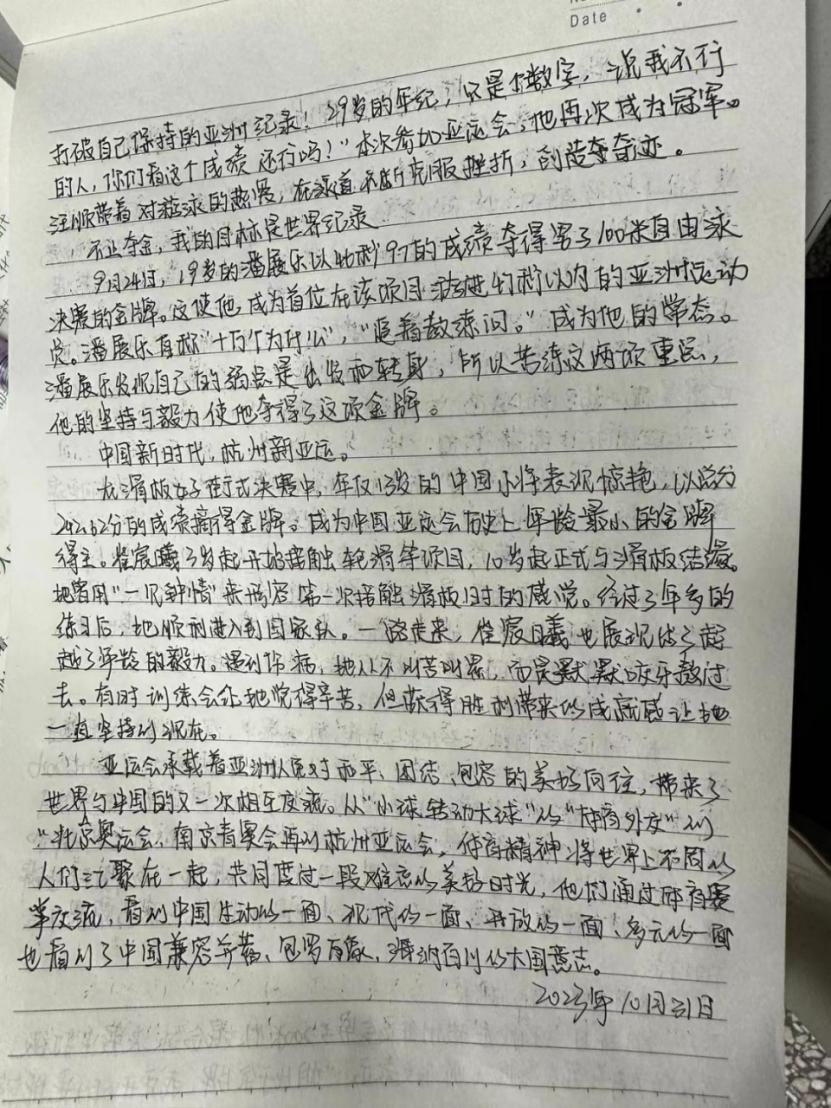 Date
打破自己保持的亚洲纪录！29岁的年纪，只是个数字，说我不行
的人，你们看这个成绩还行吗！”本次参加亚运会，他再次成为冠军。
汪顺带着对游泳的热爱，在泳道不断克服挫折，创造夺奇迹。
不止夺金，我的目标是世界纪录
9月24日，19岁的潘展乐以46秒97的成绩夺得男子100米自由泳
决赛的金牌。这使他成为首位在该项目游进47秒以内的亚洲运动
员。潘展乐自称“十万个为什么”，“追着教练问。”成为他的常态。
潘展乐发现自己的弱点是出发和转身，所以苦练这两项重点，
他的坚持与毅力使他夺得了这项金牌。
中国新时代，杭州新亚运。
在滑板女子街式决赛中，年仅13岁的中国小将表现惊艳，以总分
242.62分的成绩摘得金牌。成为中国亚运会历史上年龄最小的金牌
得主。崔宸曦7岁起开始接触轮滑等项目，10岁起正式与滑板结缘。
她曾用“一见钟情”来形容第一次接触滑板时的感觉。经过3年多的
练习后，她顺利进入到国家队。一路走来，崔宸曦也展现出了超
越了年龄的毅力。遇到伤病，她从不叫苦叫累，而是默默咬牙熬过
去。有时训练会让她觉得辛苦，但获得胜利带来的成就感让她
一直坚持到现在。
亚运会承载着亚洲人民对和平、团结、包容的美好向往，带来了
世界与中国的又一次相互交流。从“小球转动大球”的“体育外交”到
“北京奥运会、南京青奥会再到杭州亚运会，体育精神将世界上不同的
人们汇聚在一起，共同度过一段难忘的美好时光，他们通过体育赛
事交流，看到中国生动的一面、现代的一面、开放的一面、多元的一面
也看到了中国兼容并蓄、包罗万象、海纳百川的大国意志。
2023年10月31日